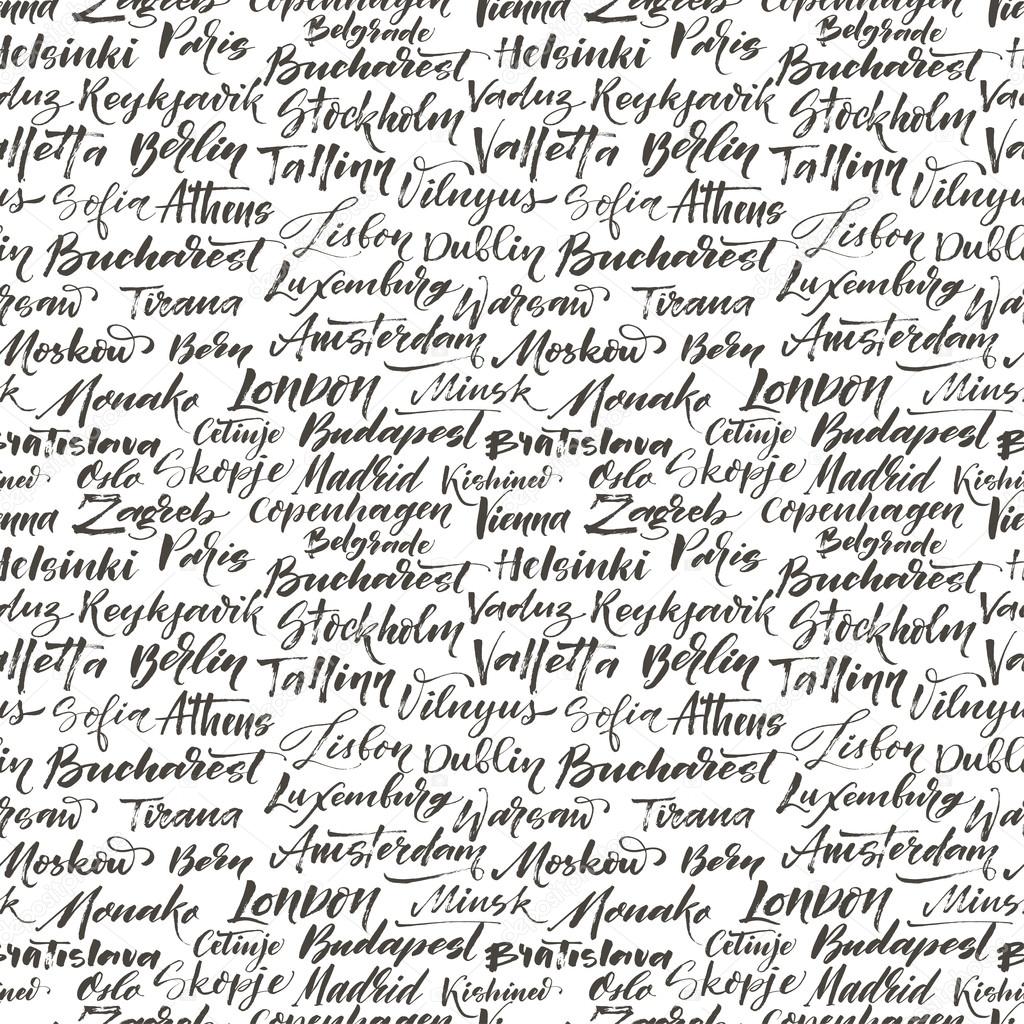 Vienna Zagreb Copenhagen Vienna Zagreb Copenhagen Vienna
Helsinki Paris Belgrade Helsinki Paris Belgrade
Bucharest Bucharest
Vaduz Reykjavik Stockholm Vaduz Reykjavik Stockholm Va
Valletta Berlin Tallinn Valletta Berlin Tallinn Va
us Sofia Athens Vilnyus Sofia Athens Vilnyus
in Bucharest Lisbon Dublin Bucharest Lisbon Dubli
rsaw Tirana Luxemburg Warsaw Tirana Luxemburg Wa
Moskow Bern Amsterdam Moskow Bern Amsterdam
k Monako London Minsk Monako London Minsk
Bratislava Cetinje Budapest Bratislava Cetinje Budapest B
ined Oslo Skopje Madrid Kishined Oslo Skopje Madrid Kishin
enna Zagreb Copenhagen Vienna Zagreb Copenhagen Vie
Helsinki Paris Belgrade Helsinki Paris Belgrade
Bucharest Bucharest
aduz Reykjavik Stockholm Vaduz Reykjavik Stockholm Va
alletta Berlin Tallinn Valletta Berlin Tallinn Va
us Sofia Athens Vilnyus Sofia Athens Vilnyus
in Bucharest Lisbon Dublin Bucharest Lisbon Dubli
rsaw Tirana Luxemburg Warsaw Tirana Luxemburg Wa
Moskow Bern Amsterdam Moskow Bern Amsterdam
k Monako London Minsk Monako London Minsk
Bratislava Cetinje Budapest Bratislava Cetinje Budapest B
ined Oslo Skopje Madrid Kishined Oslo Skopje Madrid Kishin
Zagreb Copenhagen Zagreb Copenhagen